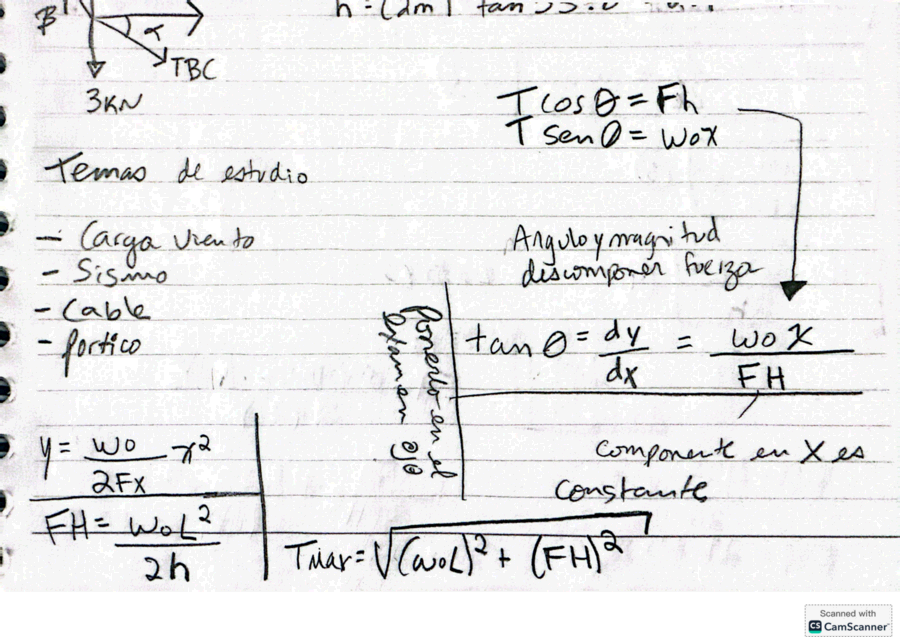 B
α
TBC
3KN
T cos θ = Fh
T sen θ = wox
Temas de estudio
- Carga viento
- Sismo
- Cable
- Portico
Angulo y magnitud
descomponer fuerza
Ponerlo en el
examen ojo
tan θ = dy/dx = wo x/FH
Componente en X es
constante
y = wo/2Fx x²
FH = woL²/2h
Tmax = √(woL)² + (FH)²
Scanned with
CS CamScanner